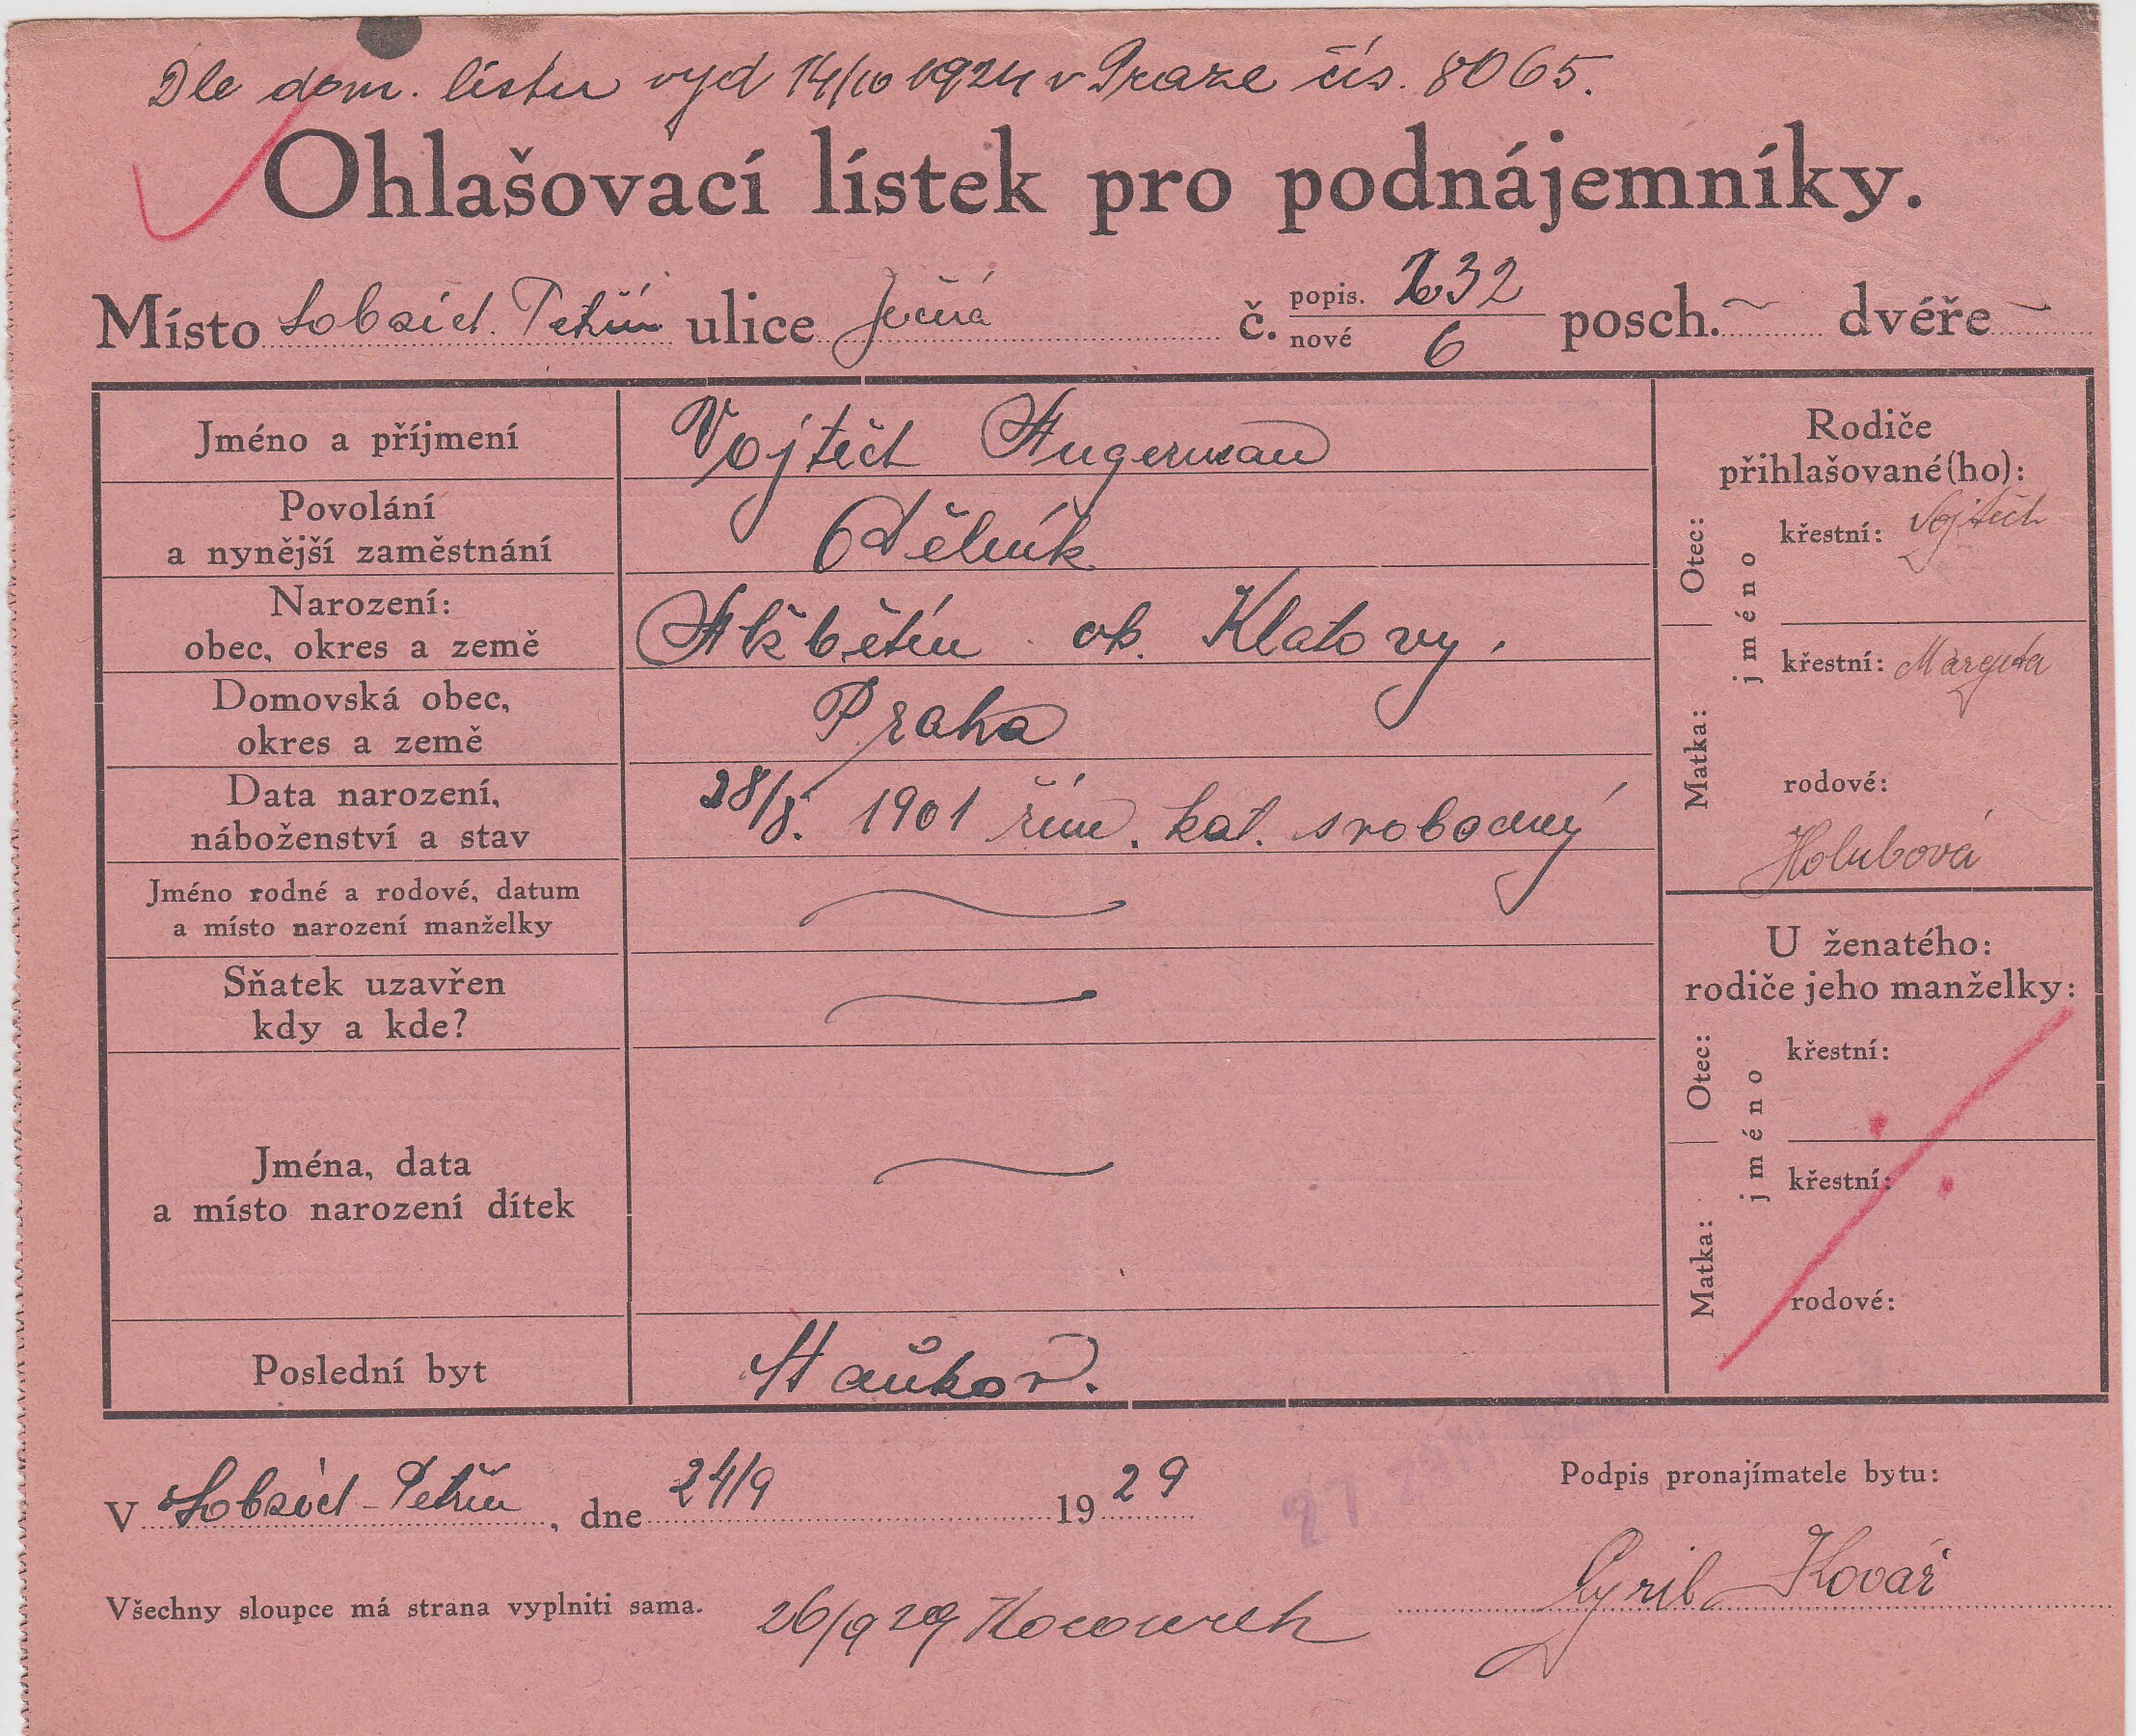 Dle dom. listu vyd 14/10 1924 v Praze čís. 8065.
Ohlašovací lístek pro podnájemníky.
Místo Lobzích. Petřín ulice Ječná č. popis. 632 nové 6 posch. ~ dvéře ~
Jméno a příjmení Vojtěch Augerman
Povolání
a nynější zaměstnání Dělník
Narození:
obec, okres a země Alžbětín ok. Klatovy.
Domovská obec,
okres a země Praha
Data narození,
náboženství a stav 28/8. 1901 řím. kat. svobodný
Jméno rodné a rodové, datum
a místo narození manželky
Sňatek uzavřen
kdy a kde?
Jména, data
a místo narození dítek
Poslední byt
Rodiče
přihlašované(ho):
Otec:
jméno
křestní: Vojtěch
Matka:
křestní: Margeta
rodové:
Holubová
U ženatého:
rodiče jeho manželky:
Otec:
jméno
křestní:
Matka:
křestní:
rodové:
V Petřín, dne 24/9 1929
27. ZÁŘÍ
Podpis pronajímatele bytu:
Cyril Kovář
Všechny sloupce má strana vyplniti sama.
26/9 29 Kocourek